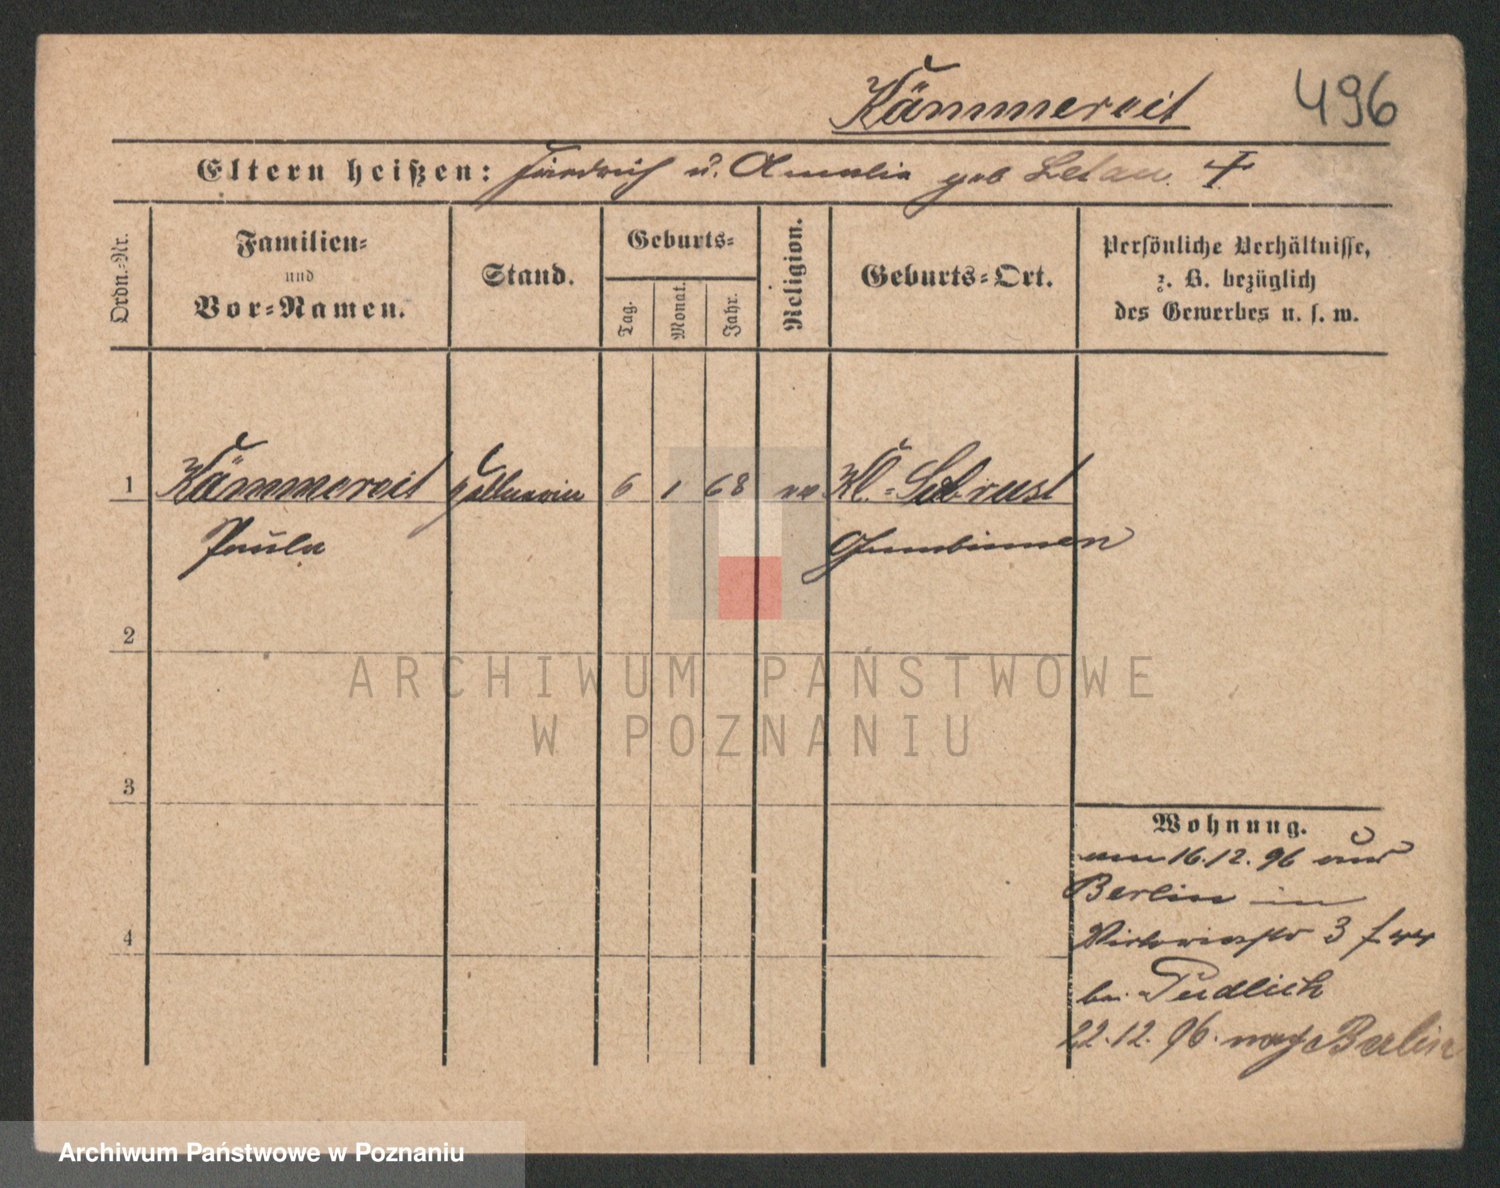 Kämmereit 496
Eltern heißen: Friedrich u. Amalia geb Letau †
Ordn.-Nr.
Familien-
und
Vor-Namen.
Stand.
Geburts-
Tag.
Monat.
Jahr.
Religion.
Geburts-Ort.
Persönliche Verhältnisse,
z. B. bezüglich
des Gewerbes u. s. w.
1 Kämmereit 6 1 68 Kl.-
Paula Gumbinnen
2
3
4
Wohnung.
am 16.12.96 aus
Berlin in
Victoriastr 3
bei Pudlich
22.12.96. nach Berlin
ARCHIWUM PAŃSTWOWE
W POZNANIU
Archiwum Państwowe w Poznaniu